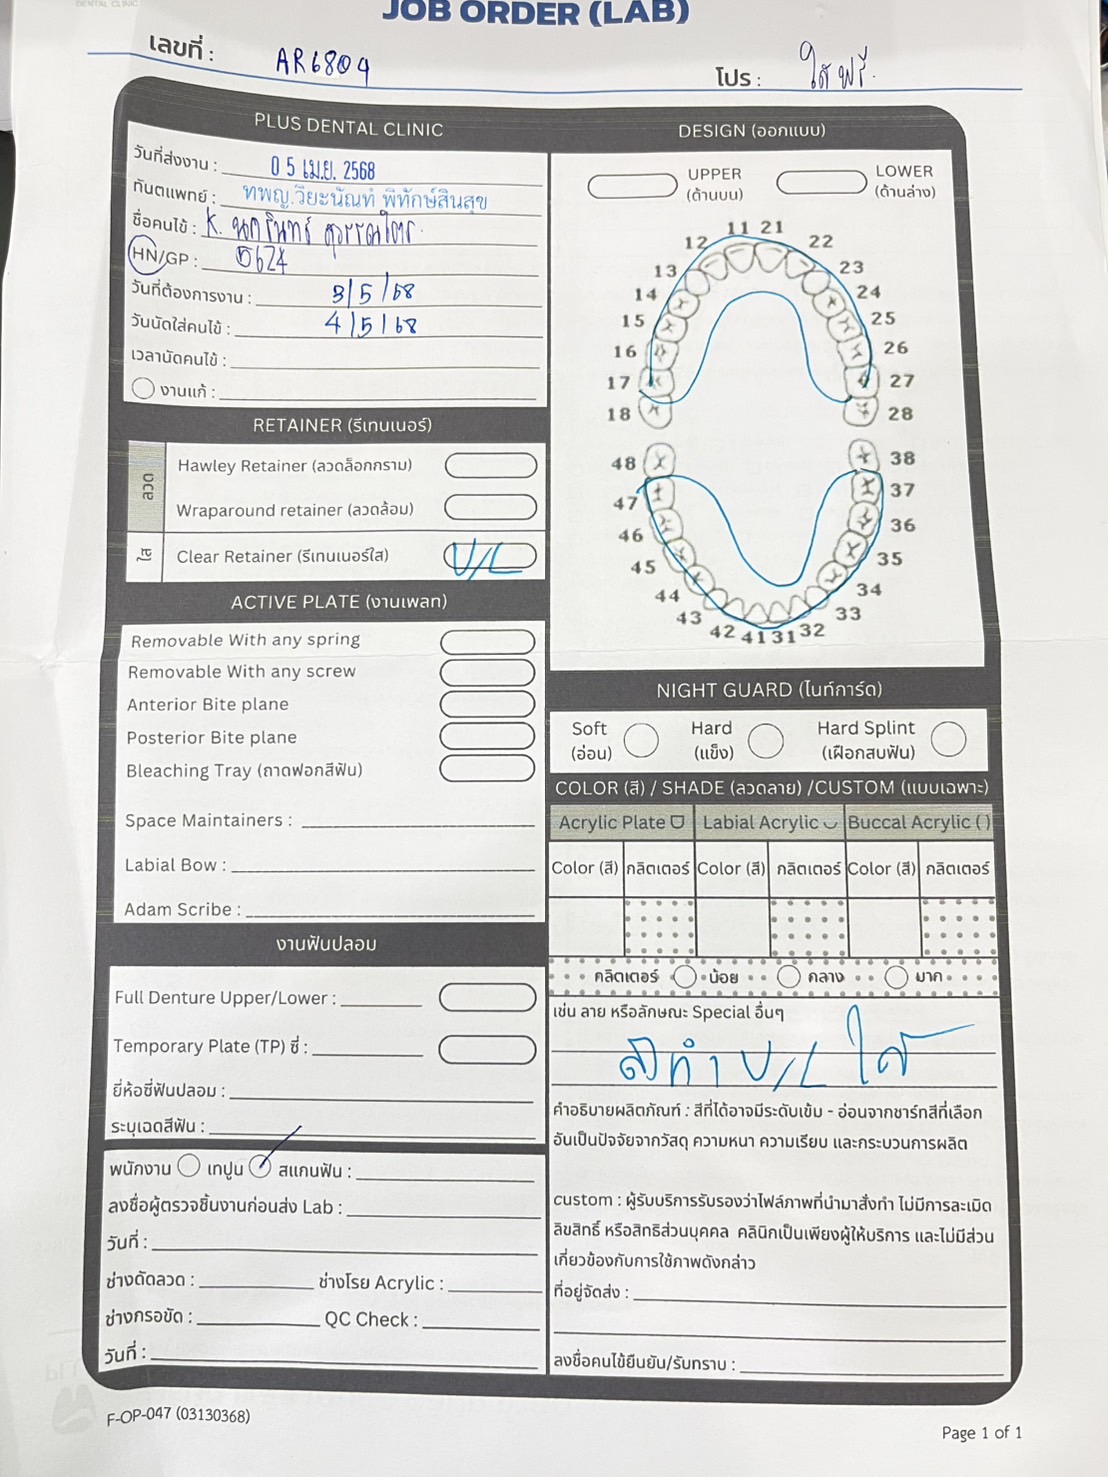 DENTAL CLINIC
JOB ORDER (LAB)
เลขที่ : AR6804
โปร : ใสฟรี.
PLUS DENTAL CLINIC
วันที่ส่งงาน : 05 เม.ย. 2568
ทันตแพทย์ : ทพญ.วิยะนัณท์ พิทักษ์สินสุข
ชื่อคนไข้ : K.
HN/GP : 5624
วันที่ต้องการงาน : 3/5/68
วันนัดใส่คนไข้ : 4/5/68
เวลานัดคนไข้ :
งานแก้ :
RETAINER (รีเทนเนอร์)
ลวด
Hawley Retainer (ลวดล็อกกราม)
Wraparound retainer (ลวดล้อม)
ใส
Clear Retainer (รีเทนเนอร์ใส) U/L
ACTIVE PLATE (งานเพลท)
Removable With any spring
Removable With any screw
Anterior Bite plane
Posterior Bite plane
Bleaching Tray (ถาดฟอกสีฟัน)
Space Maintainers :
Labial Bow :
Adam Scribe :
งานฟันปลอม
Full Denture Upper/Lower :
Temporary Plate (TP) ซี่ :
ยี่ห้อซี่ฟันปลอม :
ระบุเฉดสีฟัน :
พนักงาน เทปูน สแกนฟัน :
ลงชื่อผู้ตรวจชิ้นงานก่อนส่ง Lab :
วันที่ :
ช่างดัดลวด : ช่างโรย Acrylic :
ช่างกรอขัด : QC Check :
วันที่ :
DESIGN (ออกแบบ)
UPPER (ด้านบน)
LOWER (ด้านล่าง)
11 21
12 22
13 23
14 24
15 25
16 26
17 27
18 28
48 38
47 37
46 36
45 35
44 34
43 33
42 41 31 32
NIGHT GUARD (ไนท์การ์ด)
Soft (อ่อน)
Hard (แข็ง)
Hard Splint (เฝือกสบฟัน)
COLOR (สี) / SHADE (ลวดลาย) /CUSTOM (แบบเฉพาะ)
Acrylic Plate Labial Acrylic Buccal Acrylic ( )
Color (สี) กลิตเตอร์ Color (สี) กลิตเตอร์ Color (สี) กลิตเตอร์
กลิตเตอร์ น้อย กลาง มาก
เช่น ลาย หรือลักษณะ Special อื่นๆ
U/L ใส
คำอธิบายผลิตภัณฑ์ : สีที่ได้อาจมีระดับเข้ม - อ่อนจากชาร์ทสีที่เลือก
อันเป็นปัจจัยจากวัสดุ ความหนา ความเรียบ และกระบวนการผลิต
custom : ผู้รับบริการรับรองว่าไฟล์ภาพที่นำมาสั่งทำ ไม่มีการละเมิด
ลิขสิทธิ์ หรือสิทธิส่วนบุคคล คลินิกเป็นเพียงผู้ให้บริการ และไม่มีส่วน
เกี่ยวข้องกับการใช้ภาพดังกล่าว
ที่อยู่จัดส่ง :
ลงชื่อคนไข้ยืนยัน/รับทราบ :
F-OP-047 (03130368)
Page 1 of 1